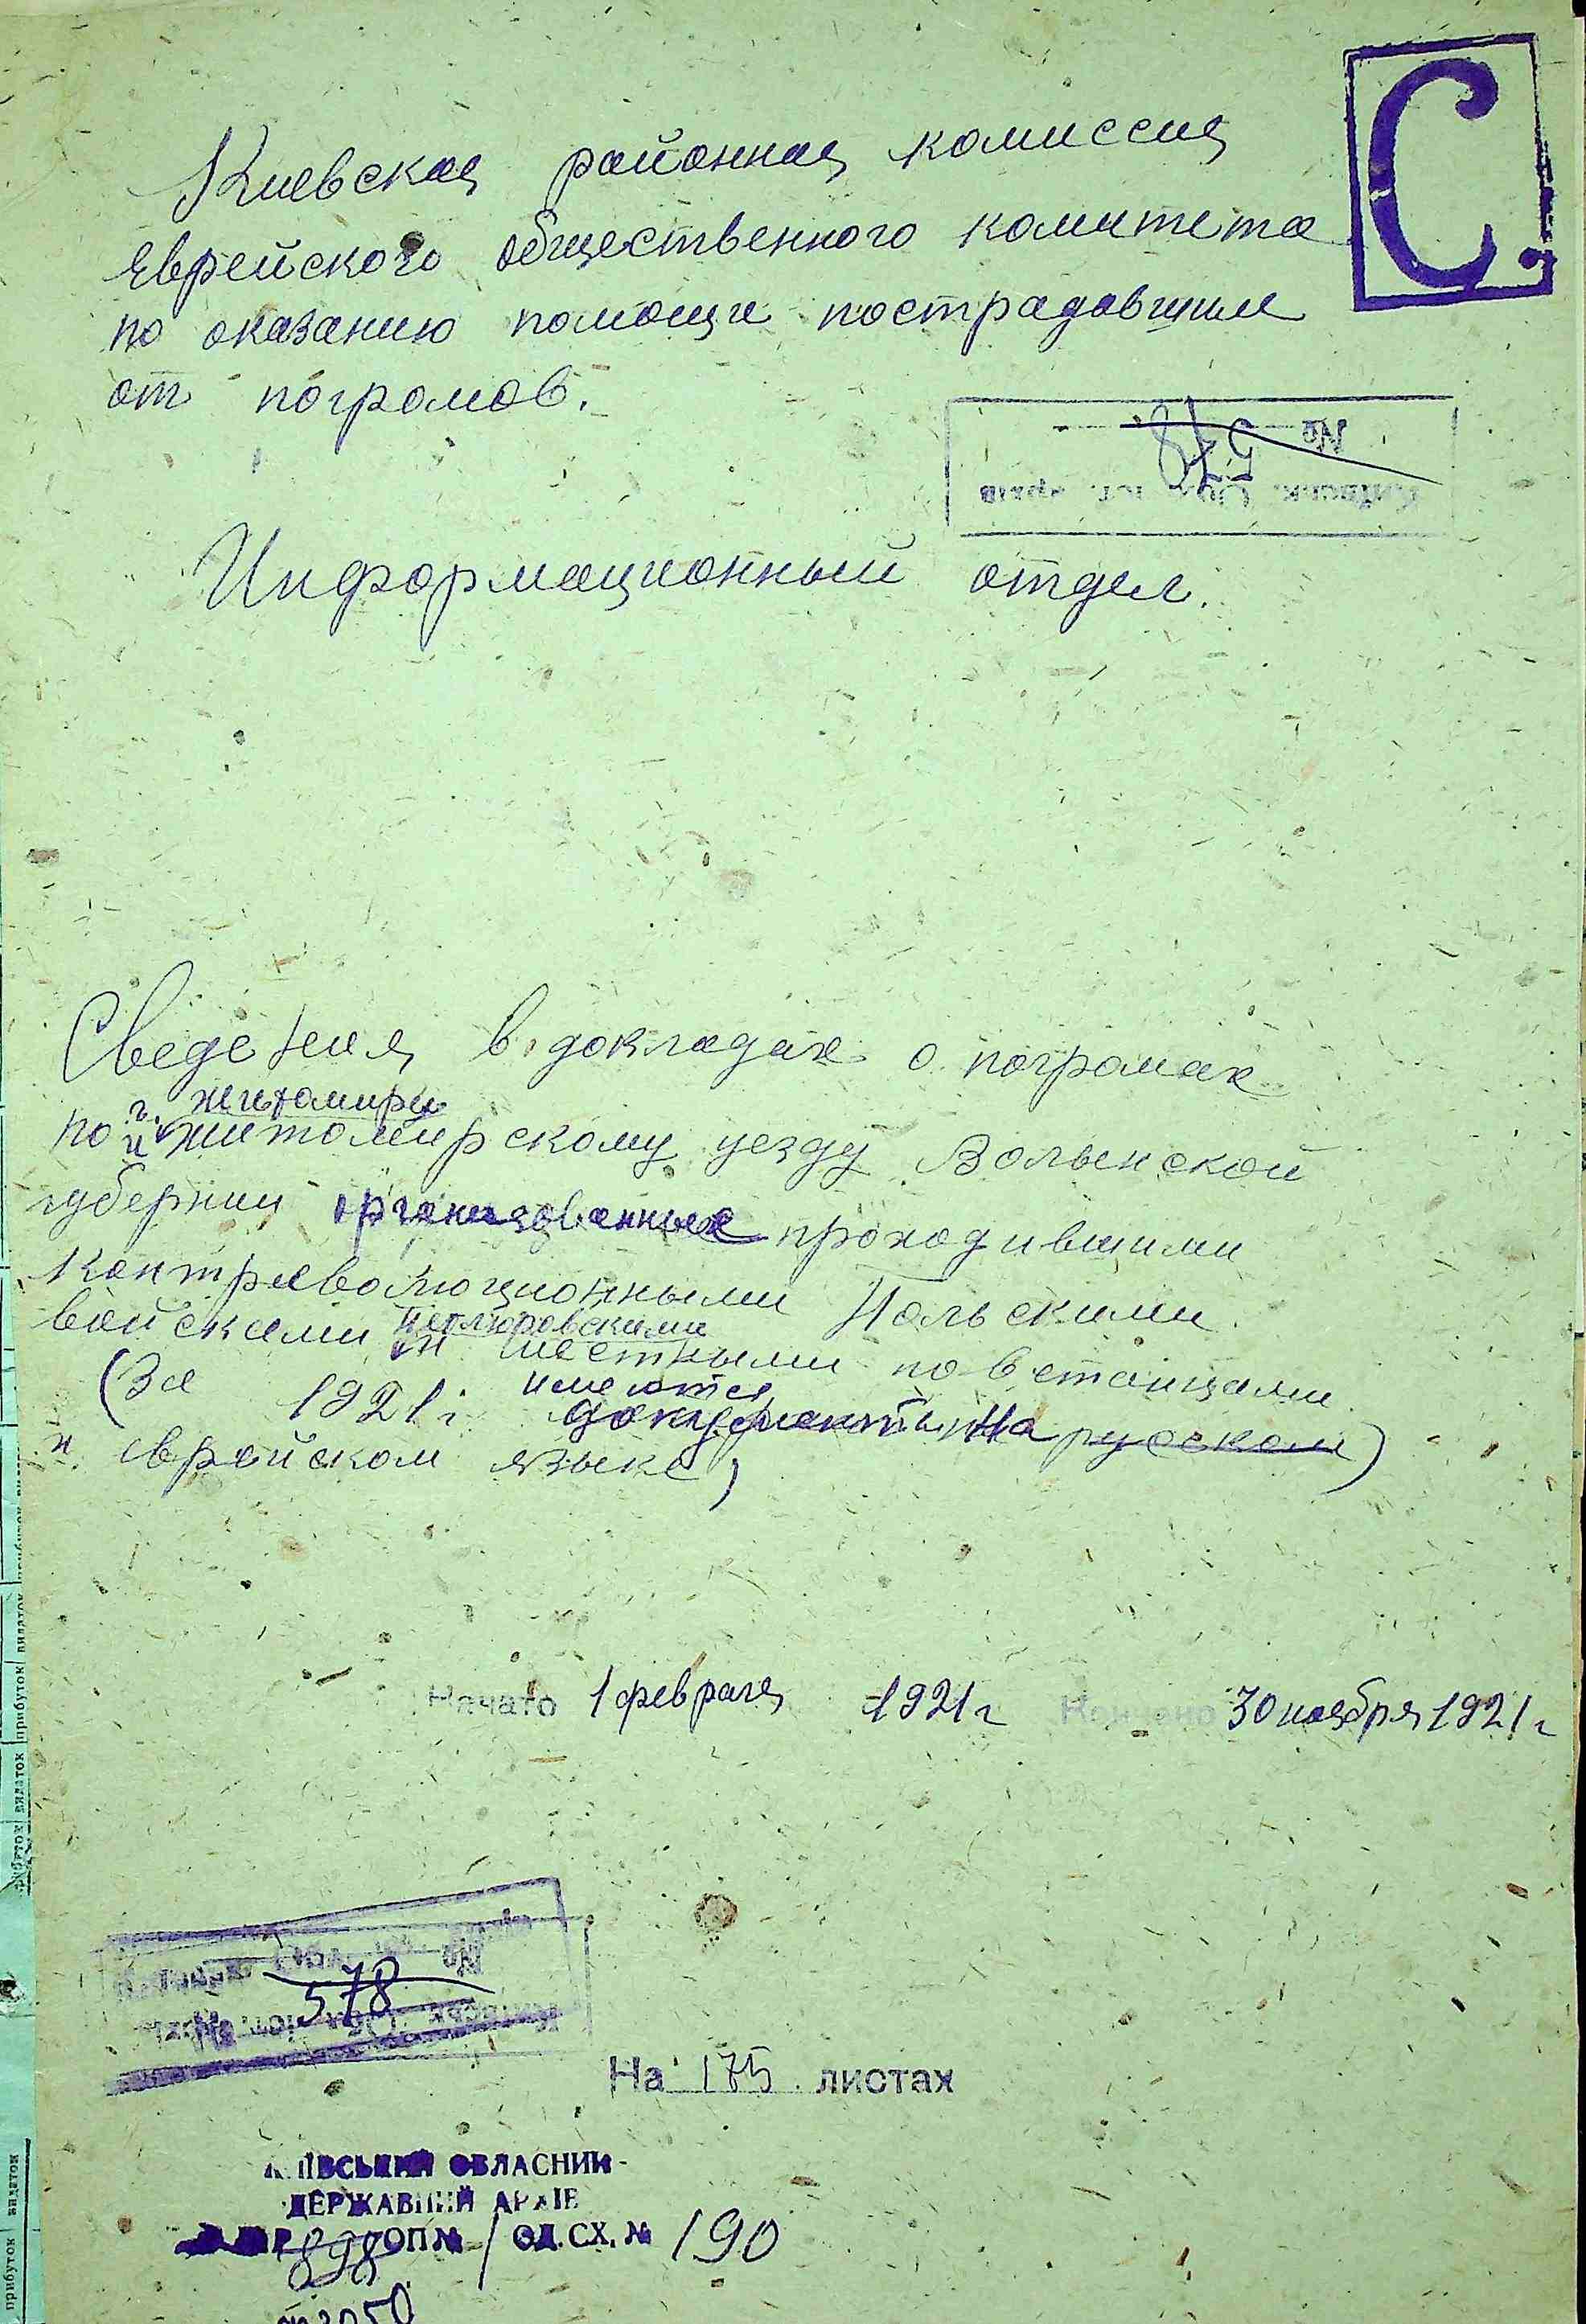 С.
Киевская районная комиссия
Еврейского общественного комитета
по оказанию помощи пострадавшим
от погромов.
№ 578
Информационный отдел.
Сведения в докладах о погромах
г. Житомиру
по и Житомирскому уезду Волынской
губернии организованных проходившими
контрреволюционными Польскими
войсками Петлюровскими
и местными повстанцами
(За 1921 г. имеются
документы на русском)
и еврейском языке)
Начато 1 февраля 1921 г Кончено 30 ноября 1921 г
№
578
На 175 листах
КИЇВСЬКИЙ ОБЛАСНИЙ
ДЕРЖАВНИЙ АРХІВ
Р 898 ОП № 1 ОД. СХ. № 190
3050
прибуток видаток